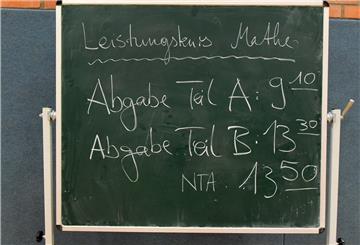 Leistungskurs Mathe
Abgabe Teil A: 9 10
Abgabe Teil B: 13 30
NTA. 13 50